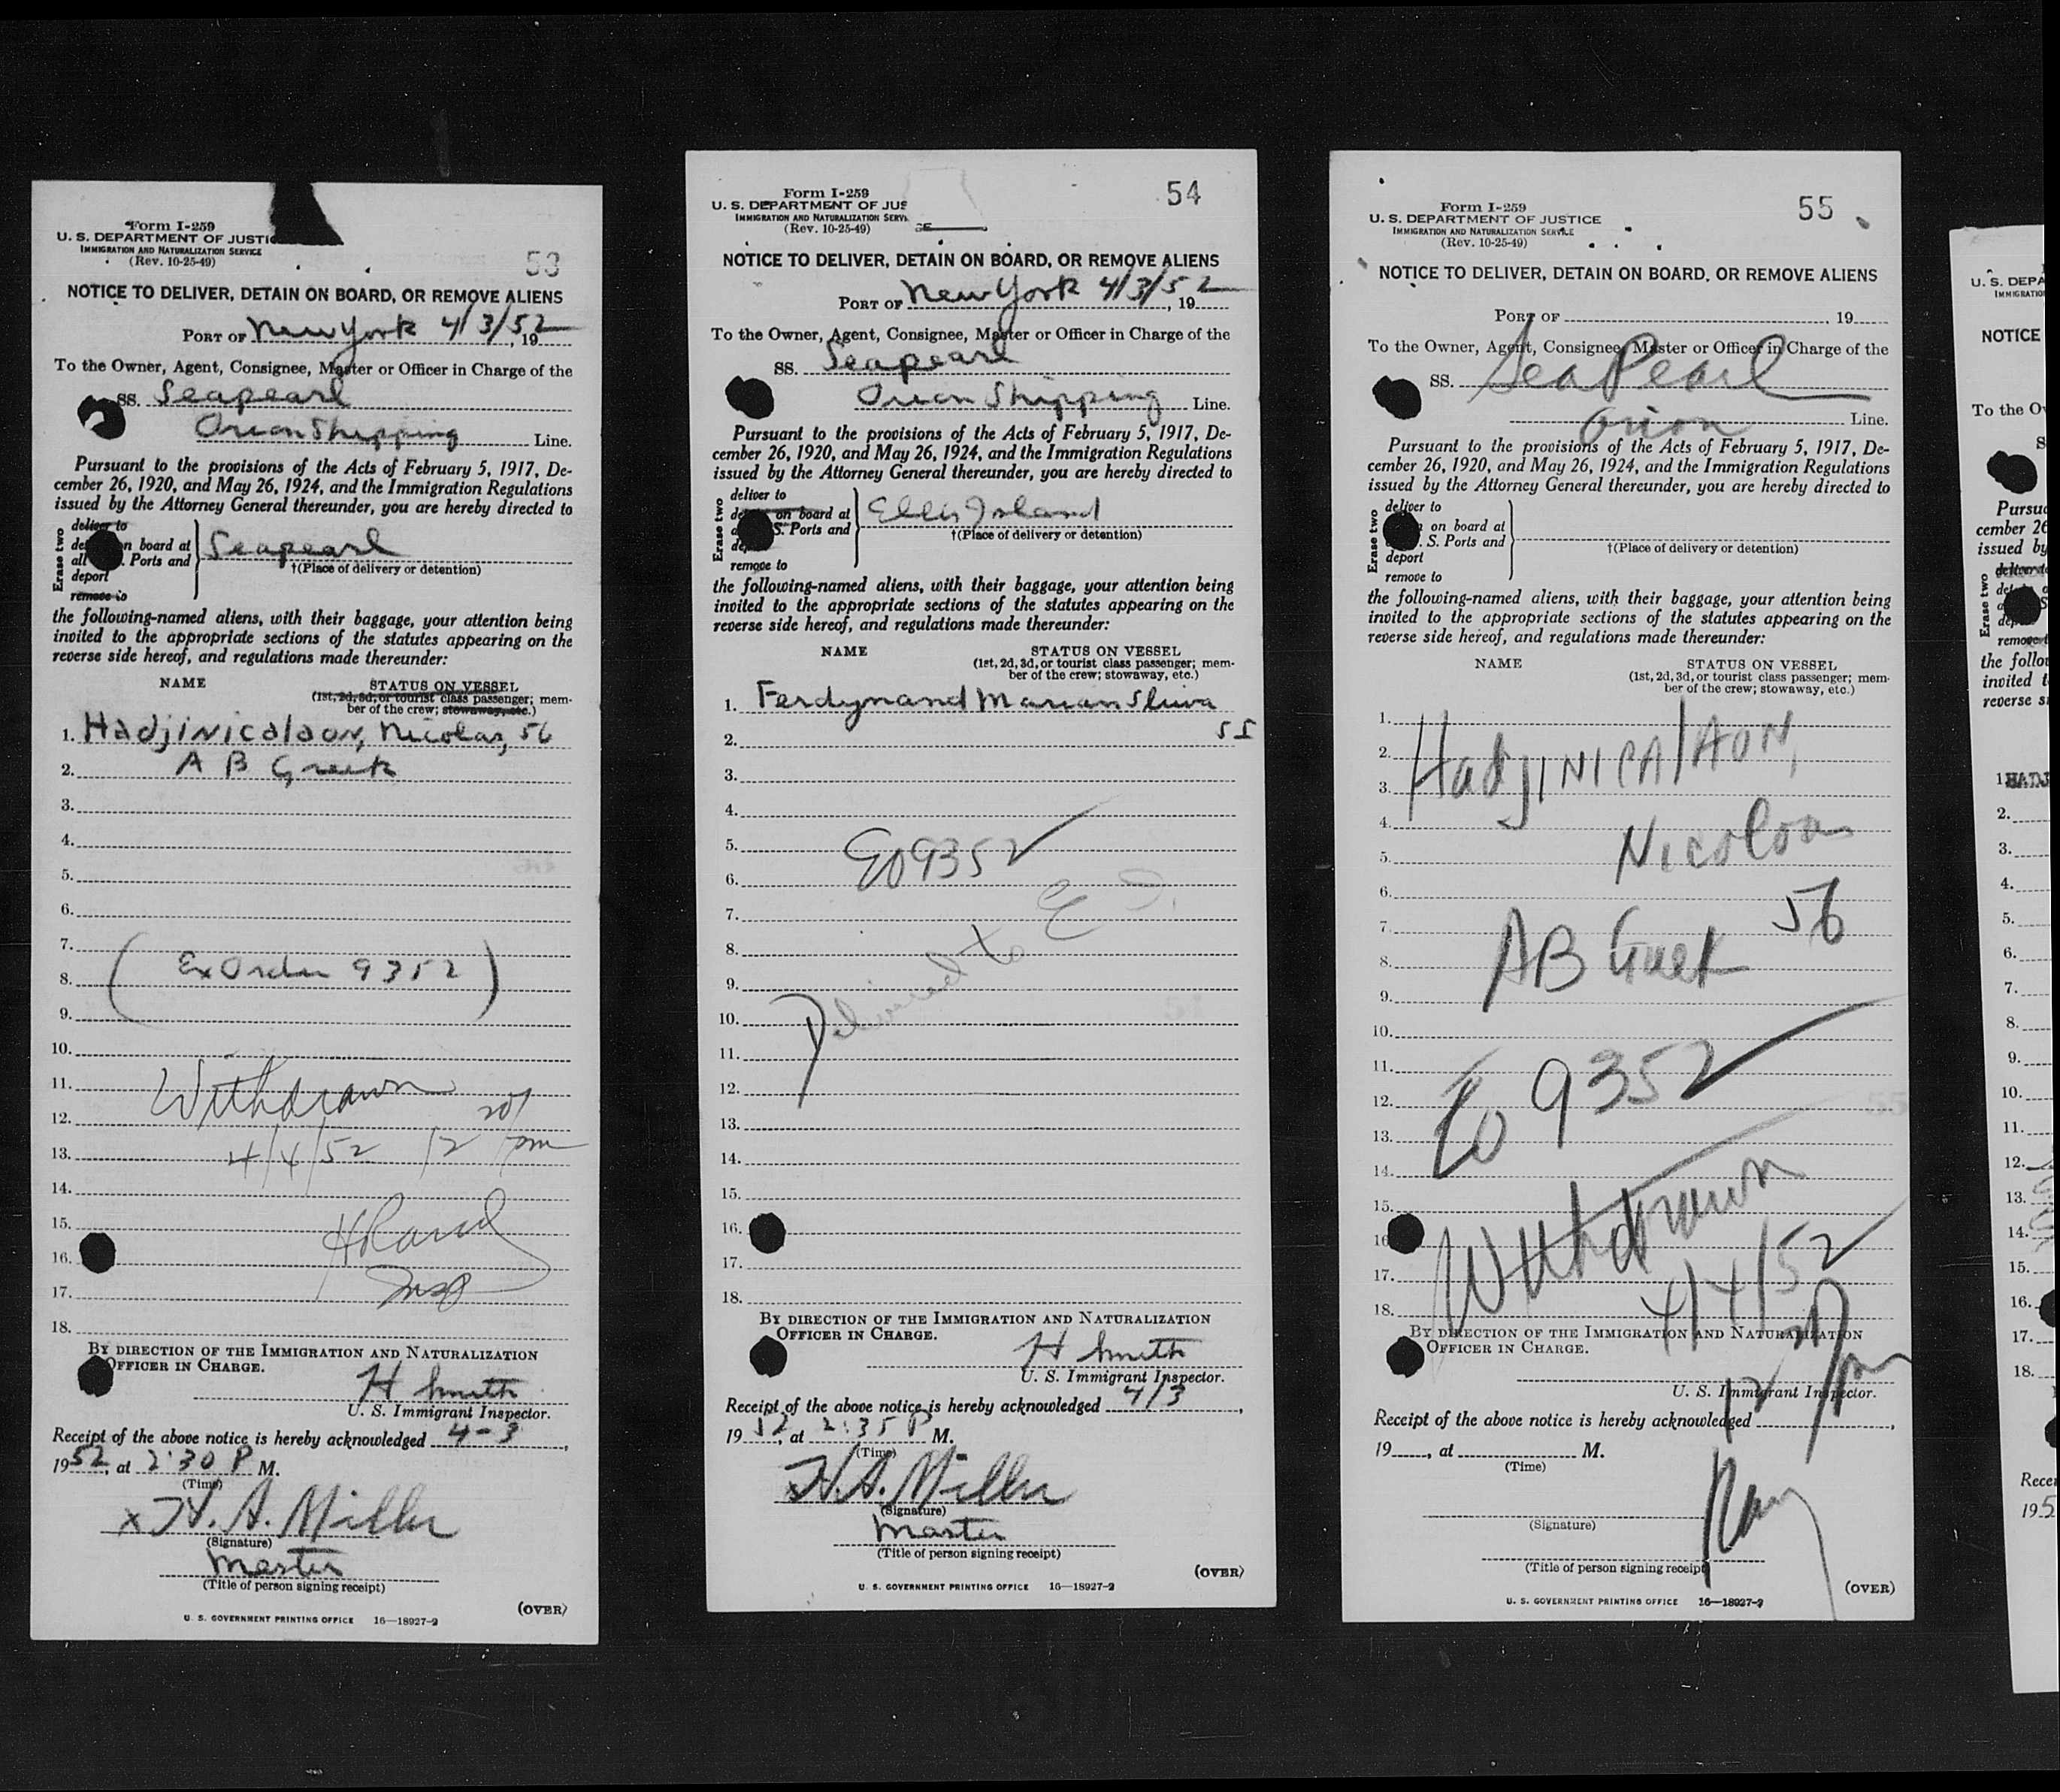 Form I-259
U. S. DEPARTMENT OF JUSTIC
IMMIGRATION AND NATURALIZATION SERVICE
(Rev. 10-25-49)
53
NOTICE TO DELIVER, DETAIN ON BOARD, OR REMOVE ALIENS
PORT OF New York 4/3/52, 19
To the Owner, Agent, Consignee, Master or Officer in Charge of the
SS. Seapearl
Orion Shipping Line.
Pursuant to the provisions of the Acts of February 5, 1917, De-
cember 26, 1920, and May 26, 1924, and the Immigration Regulations
issued by the Attorney General thereunder, you are hereby directed to
Erase two
deliver to
de n board at
all . Ports and
deport
remove to
Seapearl
†(Place of delivery or detention)
the following-named aliens, with their baggage, your attention being
invited to the appropriate sections of the statutes appearing on the
reverse side hereof, and regulations made thereunder:
NAME
STATUS ON VESSEL
(1st, 2d, 3d, or tourist class passenger; mem-
ber of the crew; stowaway, etc.)
1. Hadjinicalaon, Nicolas, 56
2. A B Greek
3.
4.
5.
6.
7.
8. (Ex Order 9352)
9.
10.
11. Withdrawn
12. 20/
13. 4/4/52 12 pm
14.
15.
16. Insp
17.
18.
BY DIRECTION OF THE IMMIGRATION AND NATURALIZATION
OFFICER IN CHARGE.
H Smith
U. S. Immigrant Inspector.
Receipt of the above notice is hereby acknowledged 4-3,
1952, at 2:30 P M.
(Time)
x H. A. Miller
(Signature)
Master
(Title of person signing receipt)
(OVER)
U. S. GOVERNMENT PRINTING OFFICE 16—18927-2
Form I-259
U. S. DEPARTMENT OF JUS
IMMIGRATION AND NATURALIZATION SERV
(Rev. 10-25-49)
54
NOTICE TO DELIVER, DETAIN ON BOARD, OR REMOVE ALIENS
PORT OF New York 4/3/52, 19
To the Owner, Agent, Consignee, Master or Officer in Charge of the
SS. Seapearl
Orion Shipping Line.
Pursuant to the provisions of the Acts of February 5, 1917, De-
cember 26, 1920, and May 26, 1924, and the Immigration Regulations
issued by the Attorney General thereunder, you are hereby directed to
Erase two
deliver to
de on board at
S. Ports and
de
remove to
Ellis Island
†(Place of delivery or detention)
the following-named aliens, with their baggage, your attention being
invited to the appropriate sections of the statutes appearing on the
reverse side hereof, and regulations made thereunder:
NAME
STATUS ON VESSEL
(1st, 2d, 3d, or tourist class passenger; mem-
ber of the crew; stowaway, etc.)
1. Ferdynand Marian Sliwa
2. 55
3.
4.
5. EO 9352
6.
7.
8.
9. Delivered to E I.
10.
11.
12.
13.
14.
15.
16.
17.
18.
BY DIRECTION OF THE IMMIGRATION AND NATURALIZATION
OFFICER IN CHARGE.
H Smith
U. S. Immigrant Inspector.
Receipt of the above notice is hereby acknowledged 4/3,
1952, at 2:35 P M.
(Time)
x H. A. Miller
(Signature)
Master
(Title of person signing receipt)
(OVER)
U. S. GOVERNMENT PRINTING OFFICE 16—18927-2
Form I-259
U. S. DEPARTMENT OF JUSTICE
IMMIGRATION AND NATURALIZATION SERVICE
(Rev. 10-25-49)
55
NOTICE TO DELIVER, DETAIN ON BOARD, OR REMOVE ALIENS
PORT OF , 19
To the Owner, Agent, Consignee, Master or Officer in Charge of the
SS. SeaPearl
Orion Line.
Pursuant to the provisions of the Acts of February 5, 1917, De-
cember 26, 1920, and May 26, 1924, and the Immigration Regulations
issued by the Attorney General thereunder, you are hereby directed to
Erase two
deliver to
on board at
. S. Ports and
deport
remove to
†(Place of delivery or detention)
the following-named aliens, with their baggage, your attention being
invited to the appropriate sections of the statutes appearing on the
reverse side hereof, and regulations made thereunder:
NAME
STATUS ON VESSEL
(1st, 2d, 3d, or tourist class passenger; mem-
ber of the crew; stowaway, etc.)
1.
2. HadjINICAlAON,
3.
4. Nicoloas
5.
6.
7. 56
8. AB Greek
9.
10.
11.
12. EO 9352
13.
14.
15. Withdrawn
16.
17. 4/4/52
18.
BY DIRECTION OF THE IMMIGRATION AND NATURALIZATION
OFFICER IN CHARGE.
12 20/pm
U. S. Immigrant Inspector.
Receipt of the above notice is hereby acknowledged ,
19, at M.
(Time)
(Signature)
(Title of person signing receipt)
(OVER)
U. S. GOVERNMENT PRINTING OFFICE 16—18927-2
U. S. DEPA
IMMIGRATIO
NOTICE
To the Ow
S
Pursu
cember 26
issued by
Erase two
deliver to
det
S
dep
remove t
the follo
invited t
reverse si
1. HADJ
2.
3.
4.
5.
6.
7.
8.
9.
10.
11.
12.
13.
14.
15.
16.
17.
18.
Recei
195